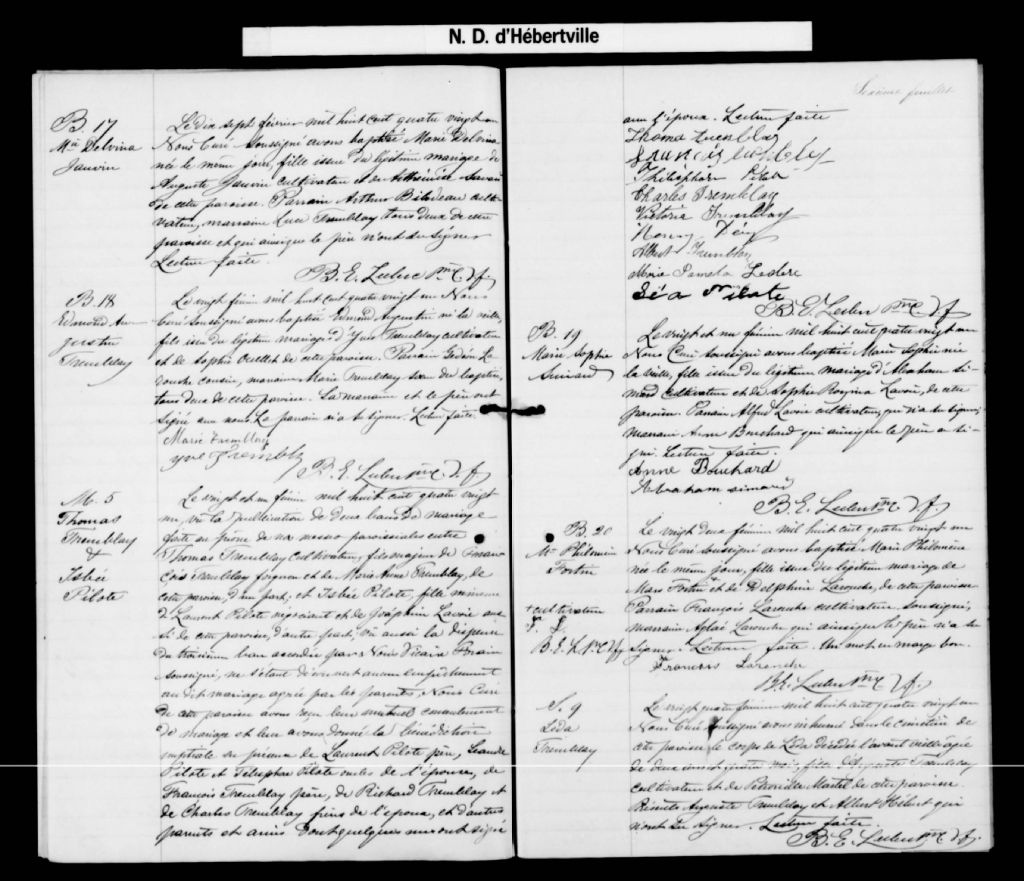 N. D. d'Hébertville
B. 17
Mie Delvina
Janvier
Le dix sept février mil huit cent quatre vingt un
Nous Curé soussigné avons baptisé Marie Delvina
née le même jour, fille issue du légitime mariage de
Auguste Janvier cultivateur et de
de cette paroisse. Parrain Arthur Bilodeau culti-
vateur, marraine Luce Tremblay tous deux de cette
paroisse et qui ainsique le père n'ont su signer
Lecture faite.
B. E. Leclerc Ptre
B. 18
Edmond Au-
gustin
Tremblay
Le vingt février mil huit cent quatre vingt un Nous
Curé soussigné avons baptisé Edmond Augustin né la veille
fils issu du légitime mariage d'Yves Tremblay cultivateur
et de Sophie Ouellet de cette paroisse. Parrain Gédéon La-
rouche cousin, marraine Marie Tremblay sœur du baptisé,
tous deux de cette paroisse. La marraine et le père ont
signé avec nous. Le parrain n'a su signer. Lecture faite.
Marie Tremblay
yve Trembly
B. E. Leclerc Ptre
M. 5
Thomas
Tremblay
&
Isbée
Pilote
Le vingt et un février mil huit cent quatre vingt
un, vu la publication de deux bans de mariage
faite au prône de nos messes paroissiales entre
Thomas Tremblay cultivateur, fils majeur de Fran-
çois Tremblay forgeron et de Marie Anne Tremblay, de
cette paroisse, d'une part; et Isbée Pilote, fille mineure
de Laurent Pilote négociant et de Joséphine Lavoie aus-
si de cette paroisse, d'autre part; vu aussi la dispense
du troisième ban accordée par Nous Vicaire Forain
soussigné, ne s'étant découvert aucun empêchement
au dit mariage agréé par les parents, Nous Curé
de cette paroisse avons reçu leur mutuel consentement
de mariage et leur avons donné la bénédiction
nuptiale en présence de Laurent Pilote père,
Pilote et Télesphore Pilote oncles de l'épouse, de
François Tremblay père, de Richard Tremblay et
de Charles Tremblay frères de l'époux, et d'autres
parents et amis dont quelques uns ont signé
feuillet
avec l'époux. Lecture faite
Thomas Tremblay
François
Pilote
Charles Tremblay
Victoria Tremblay
Henry
Albert Tremblay
Marie Pamela Leclerc
Léa Pilote
B. E. Leclerc Ptre
B. 19
Marie Sophie
Simard
Le vingt et un février mil huit cent quatre vingt un
Nous Curé soussigné avons baptisé Marie Sophie née
la veille, fille issue du légitime mariage d'Abraham Si-
mard cultivateur et de Sophie Lavoie, de cette
paroisse. Parrain Alfred Lavoie cultivateur, qui n'a su signer,
marraine Anne Bouchard qui ainsique le père a si-
gné. Lecture faite.
Anne Bouchard
Abraham simard
B. E. Leclerc Ptre
B. 20
Mie Philomène
Fortin
+ cultivateur
B. E. L. Ptre
Le vingt deux février mil huit cent quatre vingt un
Nous Curé soussigné avons baptisé Marie Philomène
née le même jour, fille issue du légitime mariage de
Marc Fortin + et de Delphine Larouche, de cette paroisse
Parrain François Larouche cultivateur soussigné,
marraine Aglaé Larouche qui ainsique le père n'a su
signer. Lecture faite. Un mot en marge bon.
Francois Larouche
B. E. Leclerc Ptre
S. 9
Léda
Tremblay
Le vingt quatre février mil huit cent quatre vingt un
Nous Curé soussigné avons inhumé dans le cimetière de
cette paroisse le corps de Léda décédée l'avant veille agée
de deux ans et quatre mois, fille Tremblay
cultivateur et de Martel de cette paroisse.
Présents Auguste Tremblay et Albert Hébert qui
n'ont su signer. Lecture faite.
B. E. Leclerc Ptre